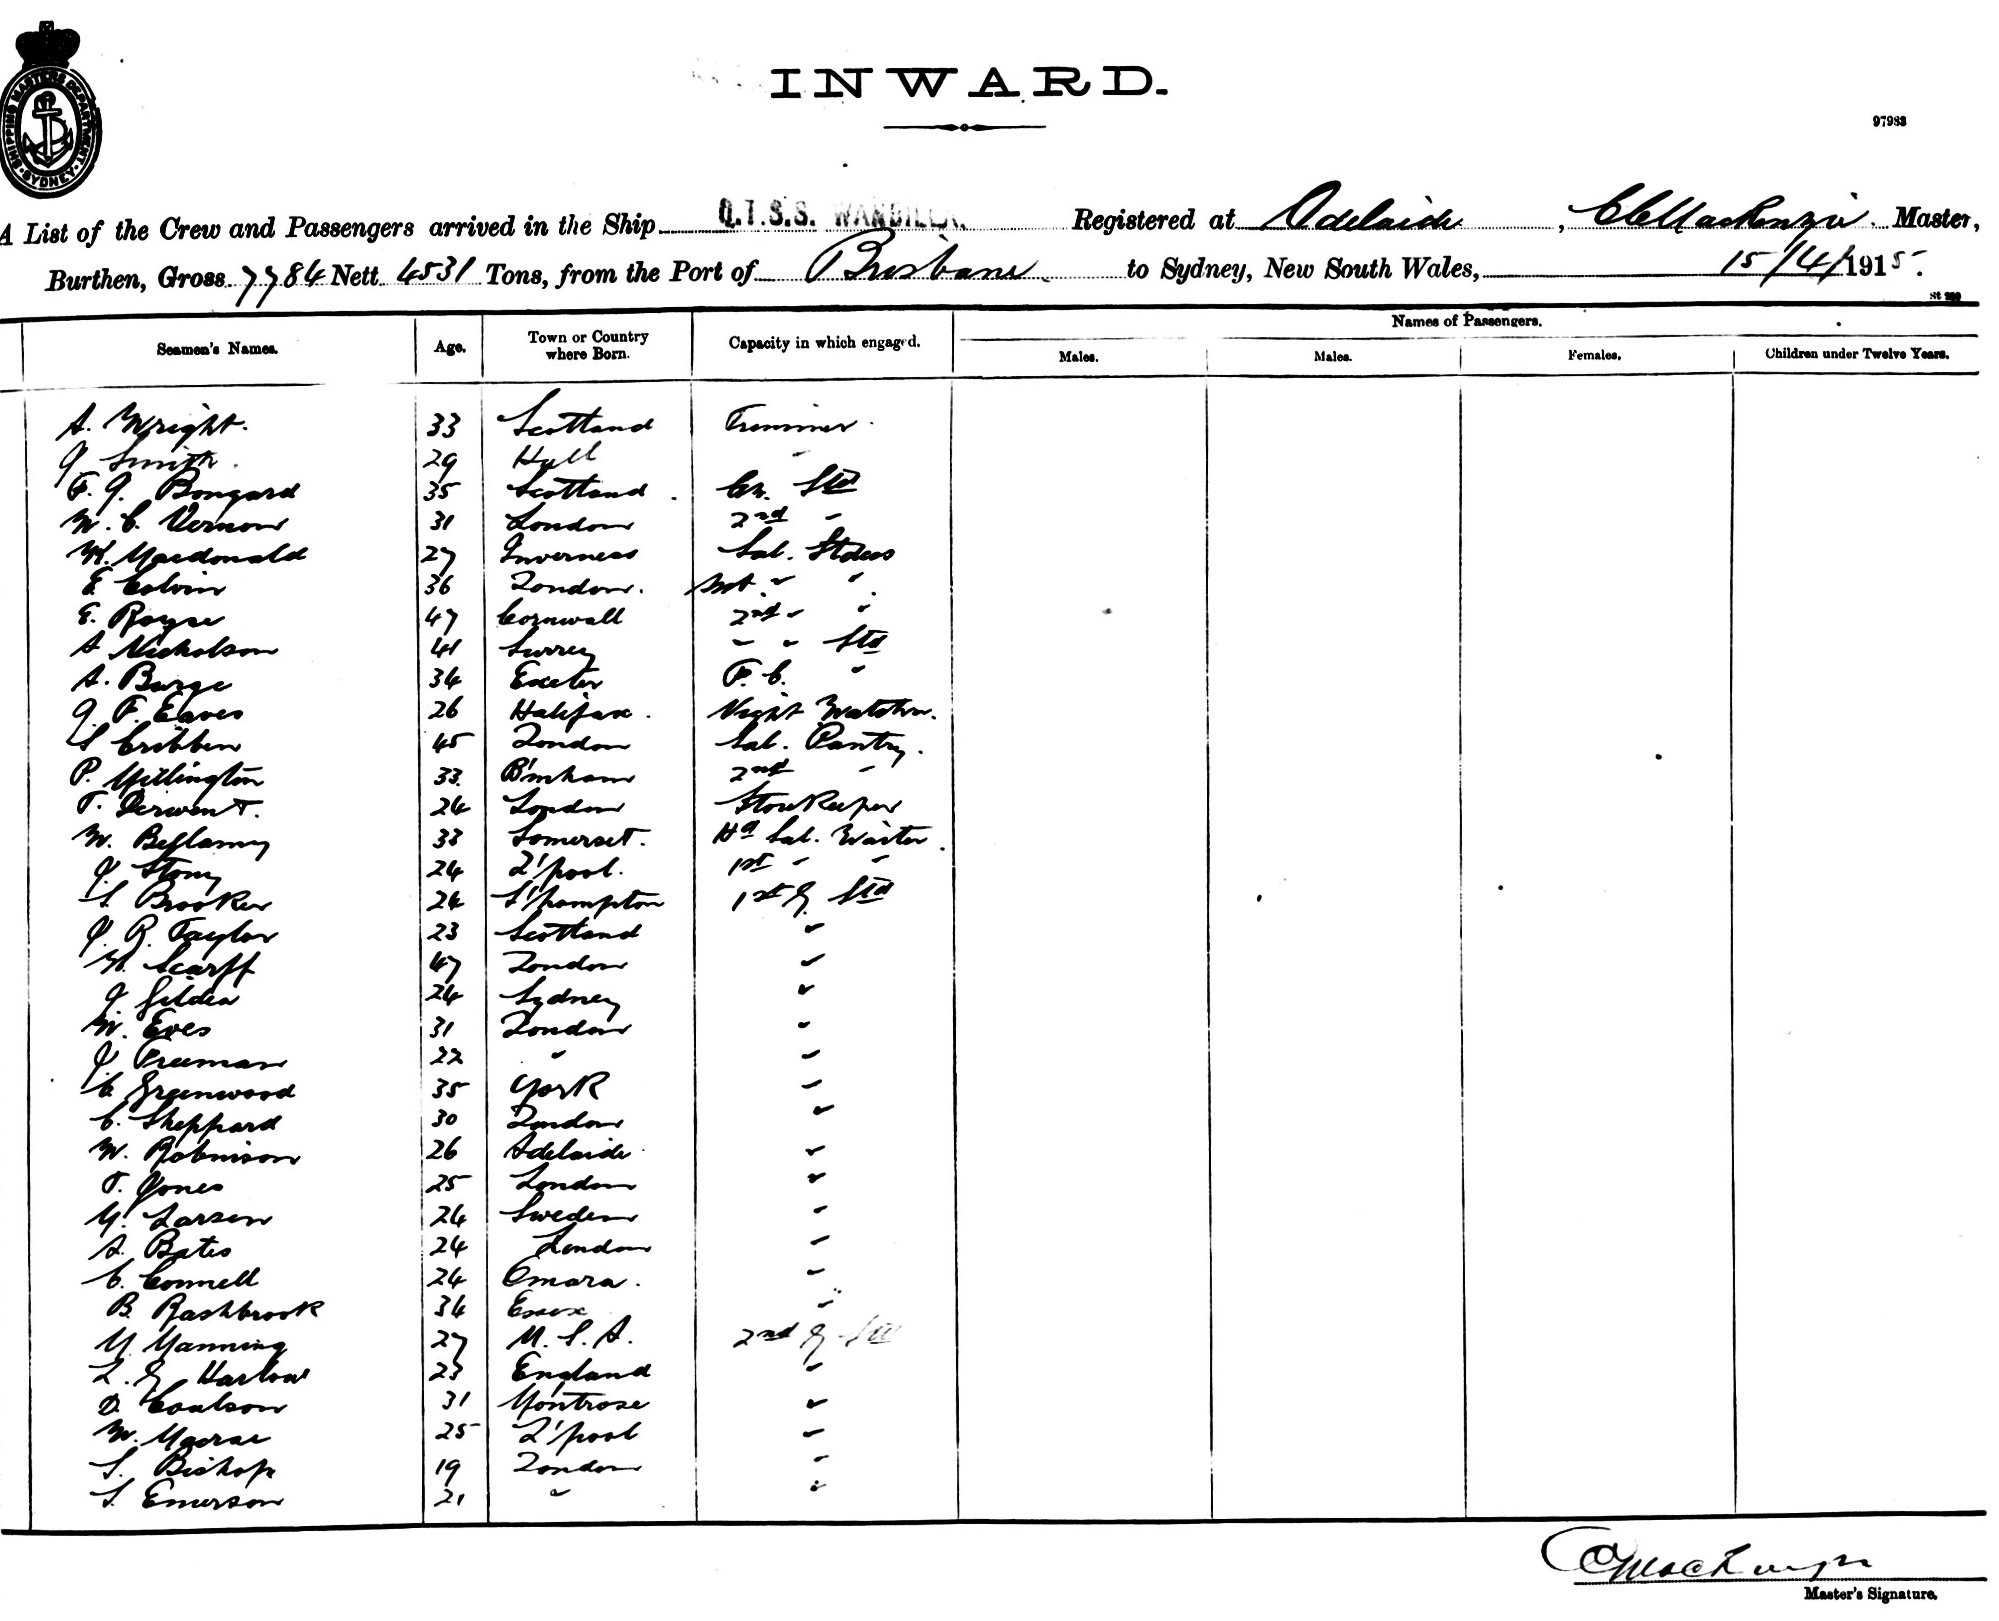 SHIPPING MASTERS DEPARTMENT SYDNEY
INWARD.
97983
A List of the Crew and Passengers arrived in the Ship Q.T.S.S. WANDILLA. Registered at Adelaide, C C Mackenzie. Master,
Burthen, Gross 7784 Nett 4531 Tons, from the Port of Brisbane to Sydney, New South Wales, 15/4/1915.
Names of Passengers.
Seamen's Names. Age. Town or Country where Born. Capacity in which engaged. Males. Males. Females. Children under Twelve Years.
A. Wright. 33 Scotland Trimmer.
J Smith. 29 Hull "
F. J. Bongard 35 Scotland. Ch. Std
W. C. Vernon 31 London 2nd "
K. Macdonald 27 Inverness Sal. Stdess
E. Colvin 36 London. " "
E. Royse 47 Cornwall 2nd " "
A Nicholson 41 Surrey " " Std
A. Burge 34 Exeter F. C. "
J. F. Eaves 26 Halifax. Night Watchn.
S Cribben 45 London Sal. Pantry.
P. Millington 33. B'mham 2nd "
T. Derwent. 24 London Storekeeper
W. Bellamy 33 Somerset. Hd Sal. Waiter.
J. Stony 24 L'pool. 1st " "
S. Brooker 24 S'hampton 1st G. Std
J. R. Taylor 23 Scotland "
H. Scarff 47 London "
J Gildea 24 Sydney "
W. Eves 31 London "
J. Freeman 22 " "
C. Greenwood 35 York "
C. Sheppard 30 London "
W. Robinson 26 Adelaide "
T. Jones 25 London "
M. Larsen 24 Sweden "
A. Bates 24 London "
C. Connell 24 Omara. "
B. Rashbrook 34 Essex "
M Manning 27 U. S. A. 2nd G Std
L. G Harlow 23 England "
D. Coulson 31 Montrose "
W. Macrae 25 L'pool "
S. Bishop 19 London "
S. Emerson 21 " "
C C Mackenzie
Master's Signature.